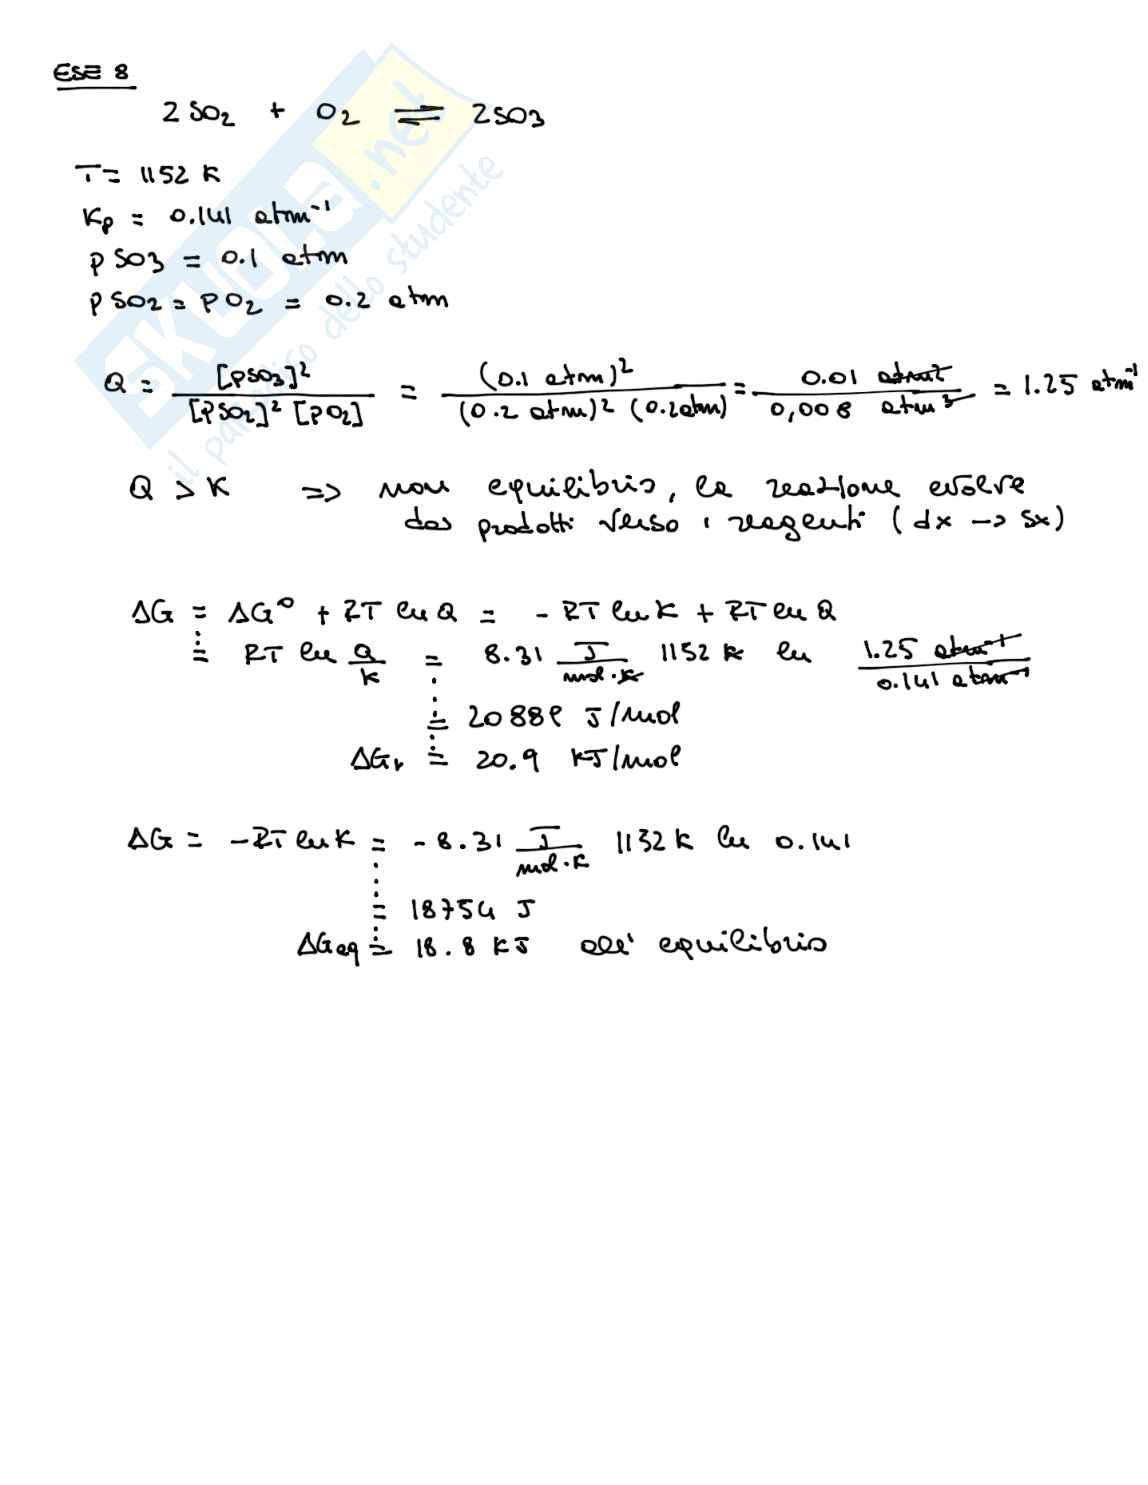 ESE 8
2 SO2 + O2 ⇌ 2SO3
T = 1152 K
Kp = 0.141 atm⁻¹
P SO3 = 0.1 atm
P SO2 = PO2 = 0.2 atm
Q = [PSO3]² / [PSO2]² [PO2] = (0.1 atm)² / (0.2 atm)² (0.2 atm) = 0.01 atm² / 0,008 atm³ = 1.25 atm⁻¹
Q > K => non equilibrio, la reazione evolve
dai prodotti verso i reagenti (dx -> sx)
ΔG = ΔG° + RT ln Q = - RT ln K + RT ln Q
= RT ln Q/K = 8.31 J/mol·K 1152 K ln 1.25 atm⁻¹ / 0.141 atm⁻¹
= 20889 J/mol
ΔGr = 20.9 KJ/mol
ΔG = -RT ln K = - 8.31 J/mol·K 1152 K ln 0.141
= 18754 J
ΔGeq = 18.8 KJ all' equilibrio
SKUOLA.net
il paradiso dello studente